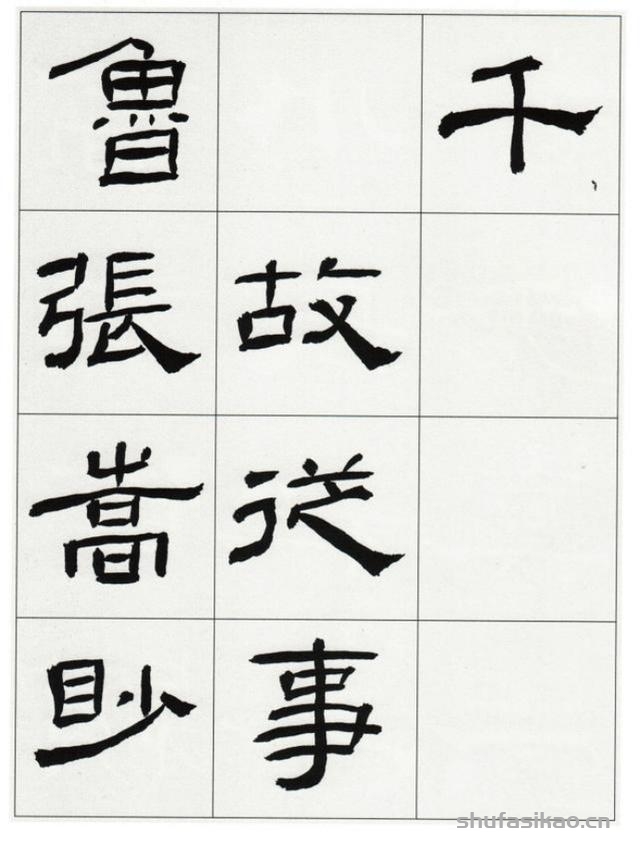 千
故従事
魯張嵩眇
shufasikao.cn